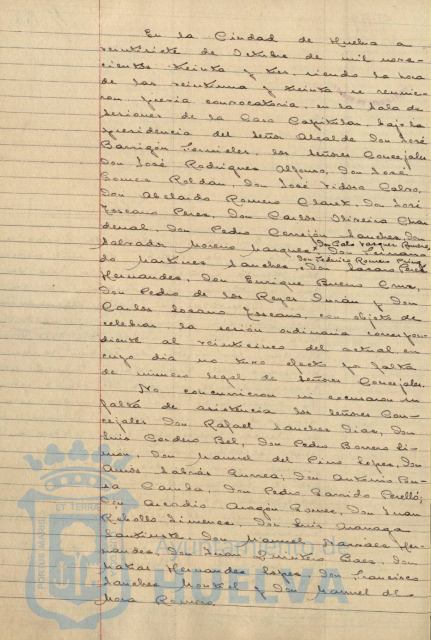 En la Ciudad de Huelva a
veintisiete de Octubre de mil nove-
cientos treinta y tres, siendo la hora
de las veintiuna y treinta, se reunie-
ron previa convocatoria, en la Sala de
sesiones de la Casa Capitular, bajo la
presidencia del Señor Alcalde Don José
Barrigón Fornieles, los señores Concejales
Don José Rodríguez Alfonso, Don José
Gómez Roldán, Don José Isidoro Calvo,
Don Abelardo Romero Claret, Don José
Toscano Pérez, Don Carlos Oliveira Cha-
denal, Don Pedro Cerrejón Sánchez, Don
Salvador Moreno Márquez, Don Fernan-
do Martínez Sánchez, Don Lázaro Pérez
Hernández, Don Enrique Bueno Cruz,
Don Pedro de los Reyes Durán y Don
Carlos Lozano Toscano, con objeto de
celebrar la sesión ordinaria correspon-
diente al veinticinco del actual, en
cuyo día no tuvo efecto por falta
de número legal de Señores Concejales.
No concurrieron ni excusaron su
falta de asistencia los señores Con-
cejales Don Rafael Sánchez Díaz, Don
Luis Cordero Bel, Don Pedro Borrero Li-
món, Don Manuel del Pino López, Don
Amós Sabrás Gurrea; Don Antonio
Don Pedro Garrido Perelló;
Don Arcadio Aragón Gómez, Don Juan
Rebollo Jiménez, Don Luis
Don Manuel Narváez Her-
nández, Don Juan Quintero Báez, Don
Hernández López, Don Francisco
Sánchez y Don Manuel de
Mora Romero.
Don Federico Romero
PORTUS MARIS
ET TERRÆ
Ayuntamiento de
HUELVA